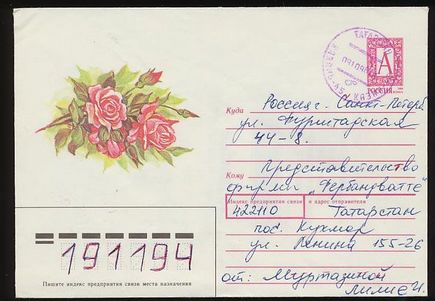 ТАТАРС
А
РОССИЯ
Куда Россия г. Санкт-Петерб
ул. Фурштадская
44-8.
Кому Представительство
фирмы „Фербандватте"
Индекс предприятия связи и адрес отправителя
422110 Татарстан
пос. Кукмор
ул. Ленина 155-26
от: Муртазиной
Лилие И.
191194
Пишите индекс предприятия связи места назначения